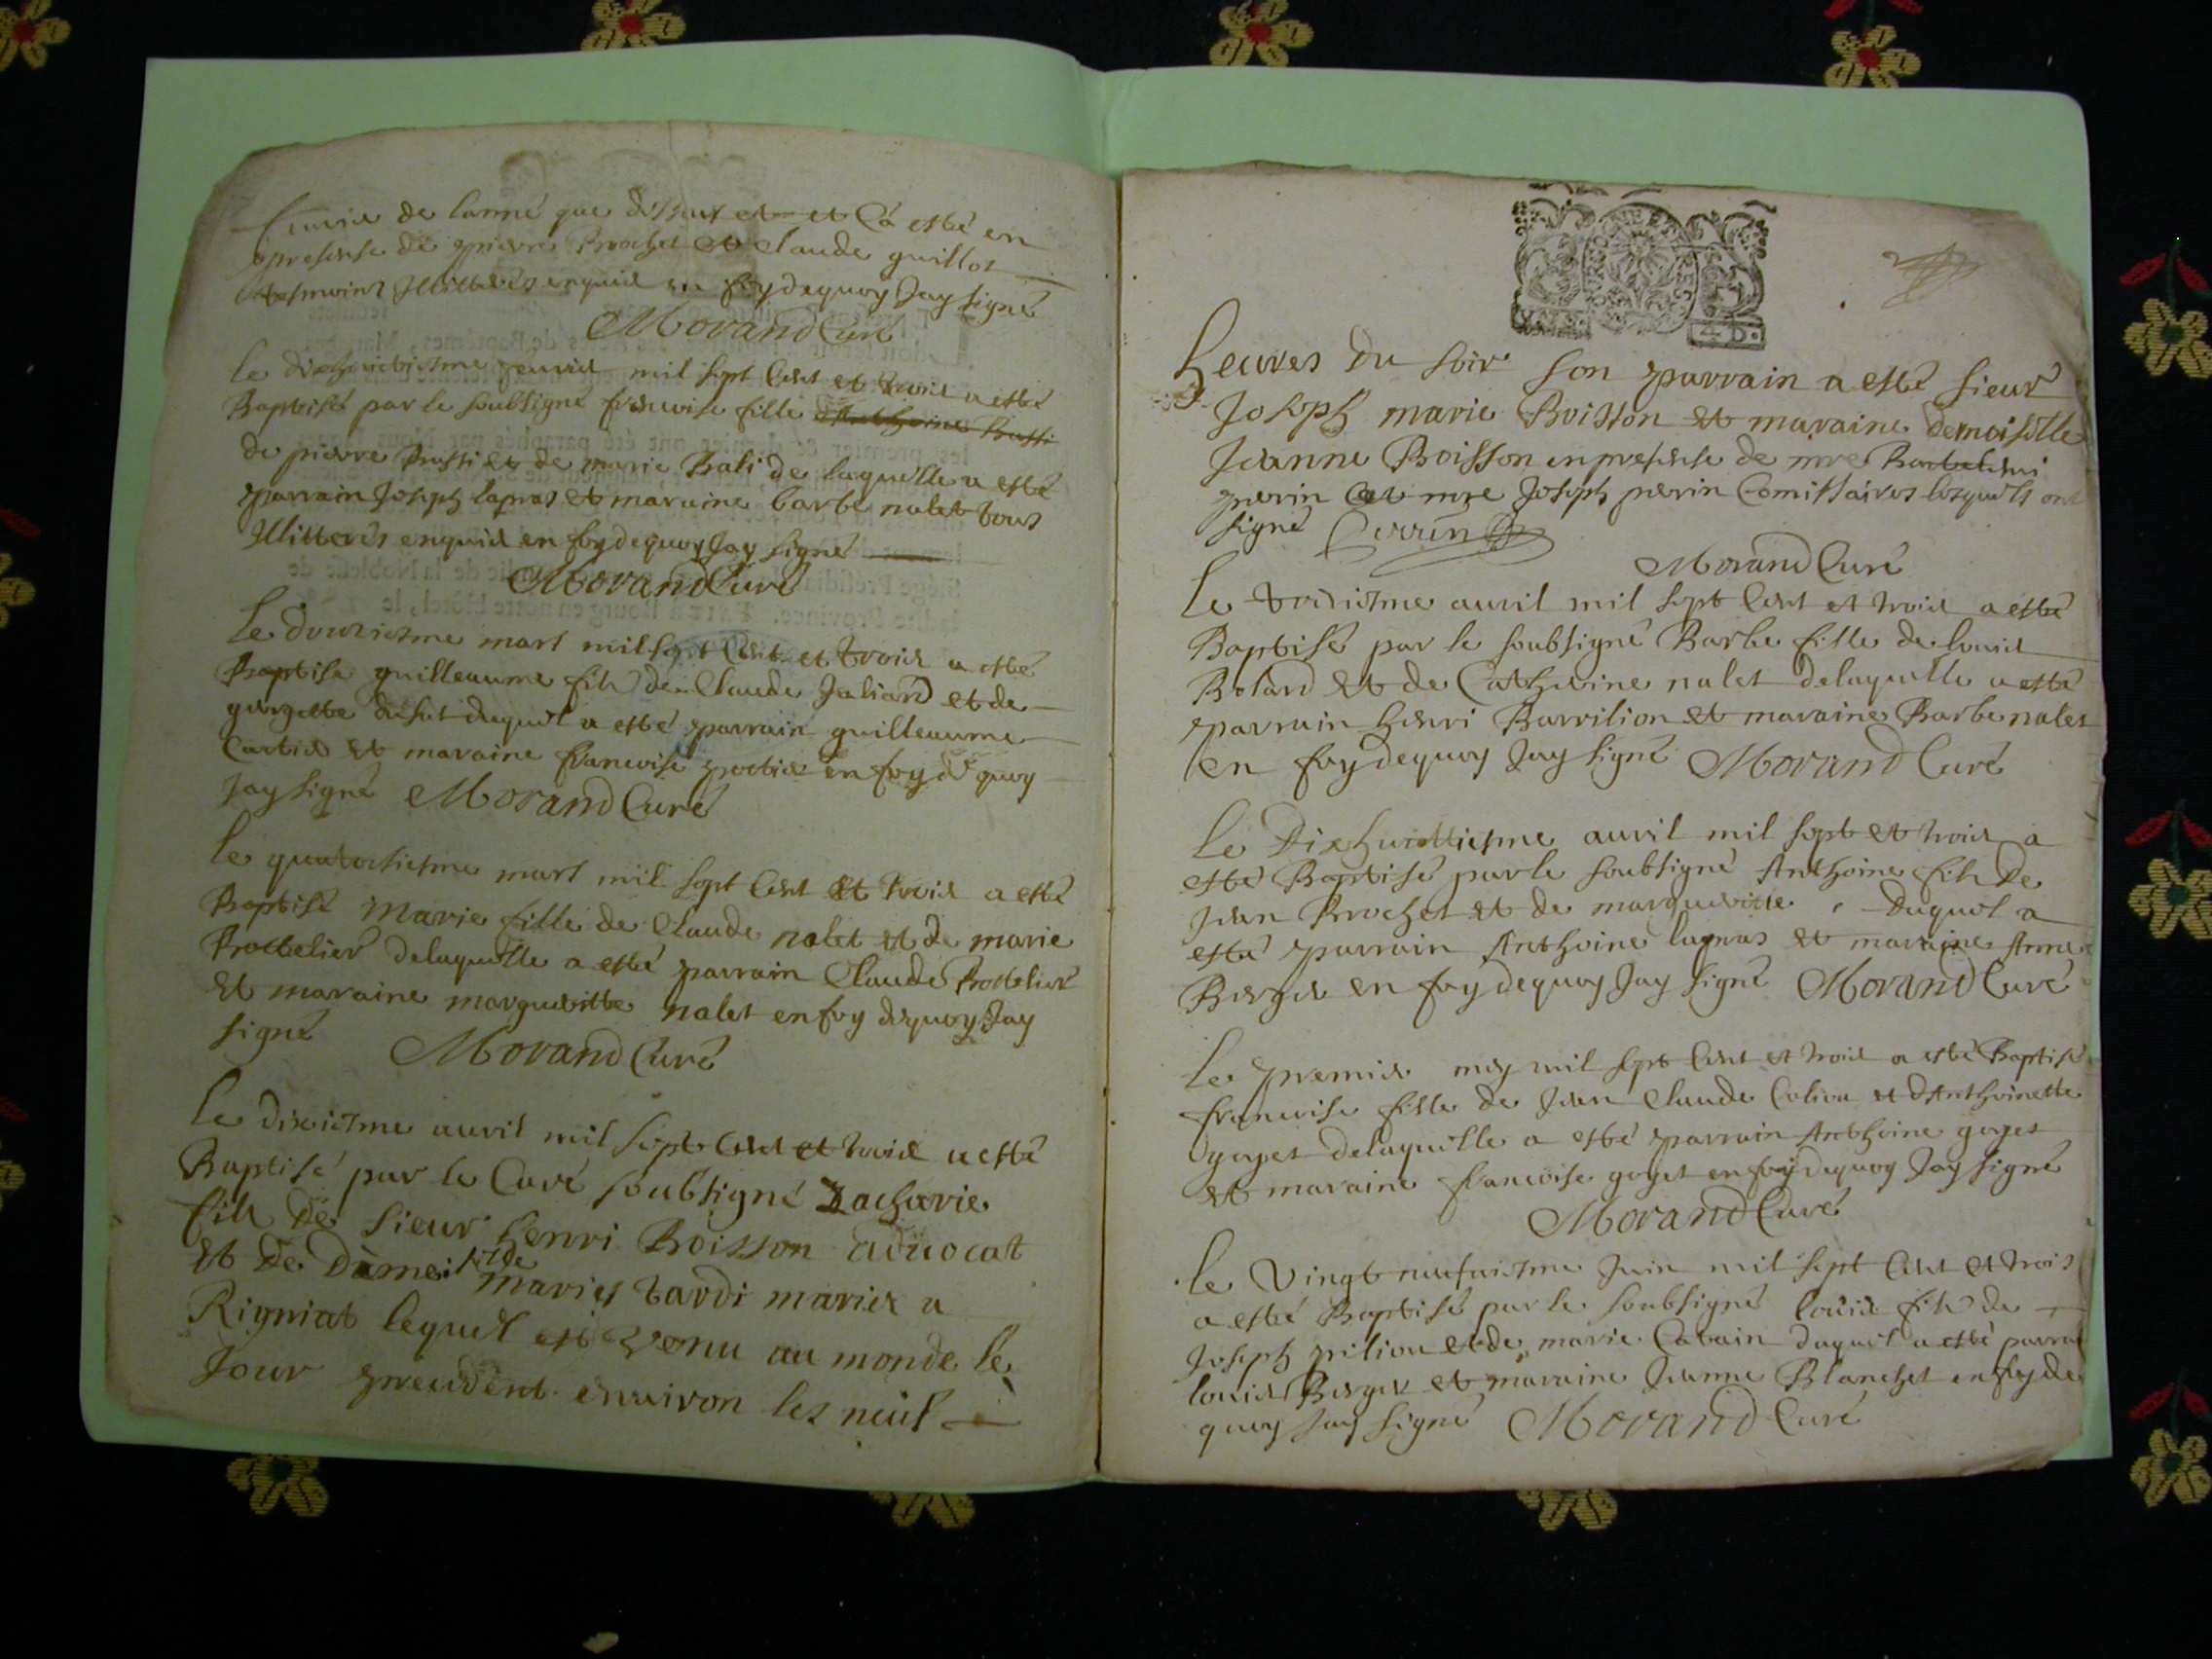 feuvier de lanné que dessus et et Ca esté en
presense de pierre Brochet et Claude guillot
tesmoins Illitterés enquis en foy dequoy Jay signé
Morand Curé
le dixhuictiesme feuvrier mil sept Cent et trois a esté
Baptisé par le soubsigné francoise fille
de pierre Brossi et de marie Bali de laquelle a esté
parrain Joseph lapras et maraine barbe nalet tous
Illitterés enquis en foy dequoy Jay signé
Morand Curé
le douziesme mars mil sept Cent et trois a esté
Baptise guilleaume fils de Claude Juliard et de
duquel a esté parrain guilleaume
Cartier et maraine francoise en foy de quoy
Jay signé Morand Curé
le quatorsiesme mars mil sept Cent et trois a esté
Baptisé marie fille de Claude nalet et de marie
Brottelier delaquelle a esté parrain Claude Brottelier
et maraine margueritte nalet en foy dequoy Jay
signé Morand Curé
le dixiesme auvril mil sept Cent et trois a esté
Baptisé par le Curé soubsigné Zacharie
fils de sieur henri Boisson advocat
et de Dameiselle marie tardi mariés a
Rigniat lequel est venu au monde le
Jour precedent environ les neuf
heures du soir son parrain a esté sieur
Joseph marie Boisson et maraine demoiselle
Jeanne Boisson en presense de mre
perin et mre Joseph perin Comissaires lesquels ont
signé Perrin
Morand Curé
le treisiesme auvril mil sept Cent et trois a esté
Baptisé par le soubsigné Barbe fille de louis
Bolard et de Catherine nalet delaquelle a esté
parrain henri Barrilion et maraine Barbe nalet
en foy dequoy Jay signé Morand Curé
le Dixhuictiesme auvril mil sept et trois a
esté Baptisé par le soubsigné Anthoine fils de
Jean Brochet et de marguerite duquel a
esté parrain Anthoine lapras et maraine Anne
Berger en foy dequoy Jay signé Morand Curé
le premier may mil sept Cent et trois a esté Baptisé
francoise fille de Jean Claude Coliou et dAnthoinette
goyet delaquelle a esté parrain Anthoine goyet
et maraine francoise goyet en foy dequoy Jay signé
Morand Curé
le Vingt neufuiesme Juin mil sept Cent et trois
a esté Baptisé par le soubsigné louis fils de
Joseph piliou et de marie Cavain duquel a esté parrai
louis Berger et maraine Jeanne Blanchet en foy de
quoy Jay signé Morand Curé